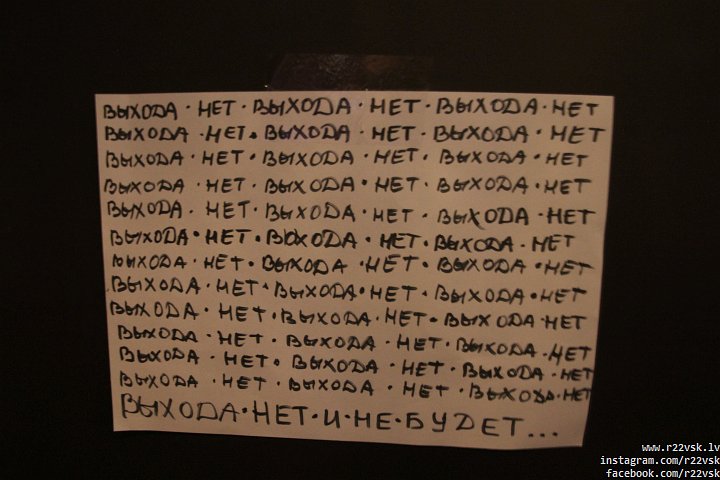 ВЫХОДА · НЕТ · ВЫХОДА · НЕТ · ВЫХОДА · НЕТ
ВЫХОДА · НЕТ · ВЫХОДА · НЕТ · ВЫХОДА · НЕТ
ВЫХОДА · НЕТ · ВЫХОДА · НЕТ · ВЫХОДА · НЕТ
ВЫХОДА · НЕТ · ВЫХОДА · НЕТ · ВЫХОДА · НЕТ
ВЫХОДА · НЕТ · ВЫХОДА · НЕТ · ВЫХОДА · НЕТ
ВЫХОДА · НЕТ · ВЫХОДА · НЕТ · ВЫХОДА · НЕТ
ВЫХОДА · НЕТ · ВЫХОДА · НЕТ · ВЫХОДА · НЕТ
ВЫХОДА · НЕТ · ВЫХОДА · НЕТ · ВЫХОДА · НЕТ
ВЫХОДА · НЕТ · ВЫХОДА · НЕТ · ВЫХОДА · НЕТ
ВЫХОДА · НЕТ · ВЫХОДА · НЕТ · ВЫХОДА · НЕТ
ВЫХОДА · НЕТ · ВЫХОДА · НЕТ · ВЫХОДА · НЕТ
ВЫХОДА · НЕТ · ВЫХОДА · НЕТ · ВЫХОДА · НЕТ
ВЫХОДА · НЕТ · И · НЕ · БУДЕТ...
www.r22vsk.lv
instagram.com/r22vsk
facebook.com/r22vsk